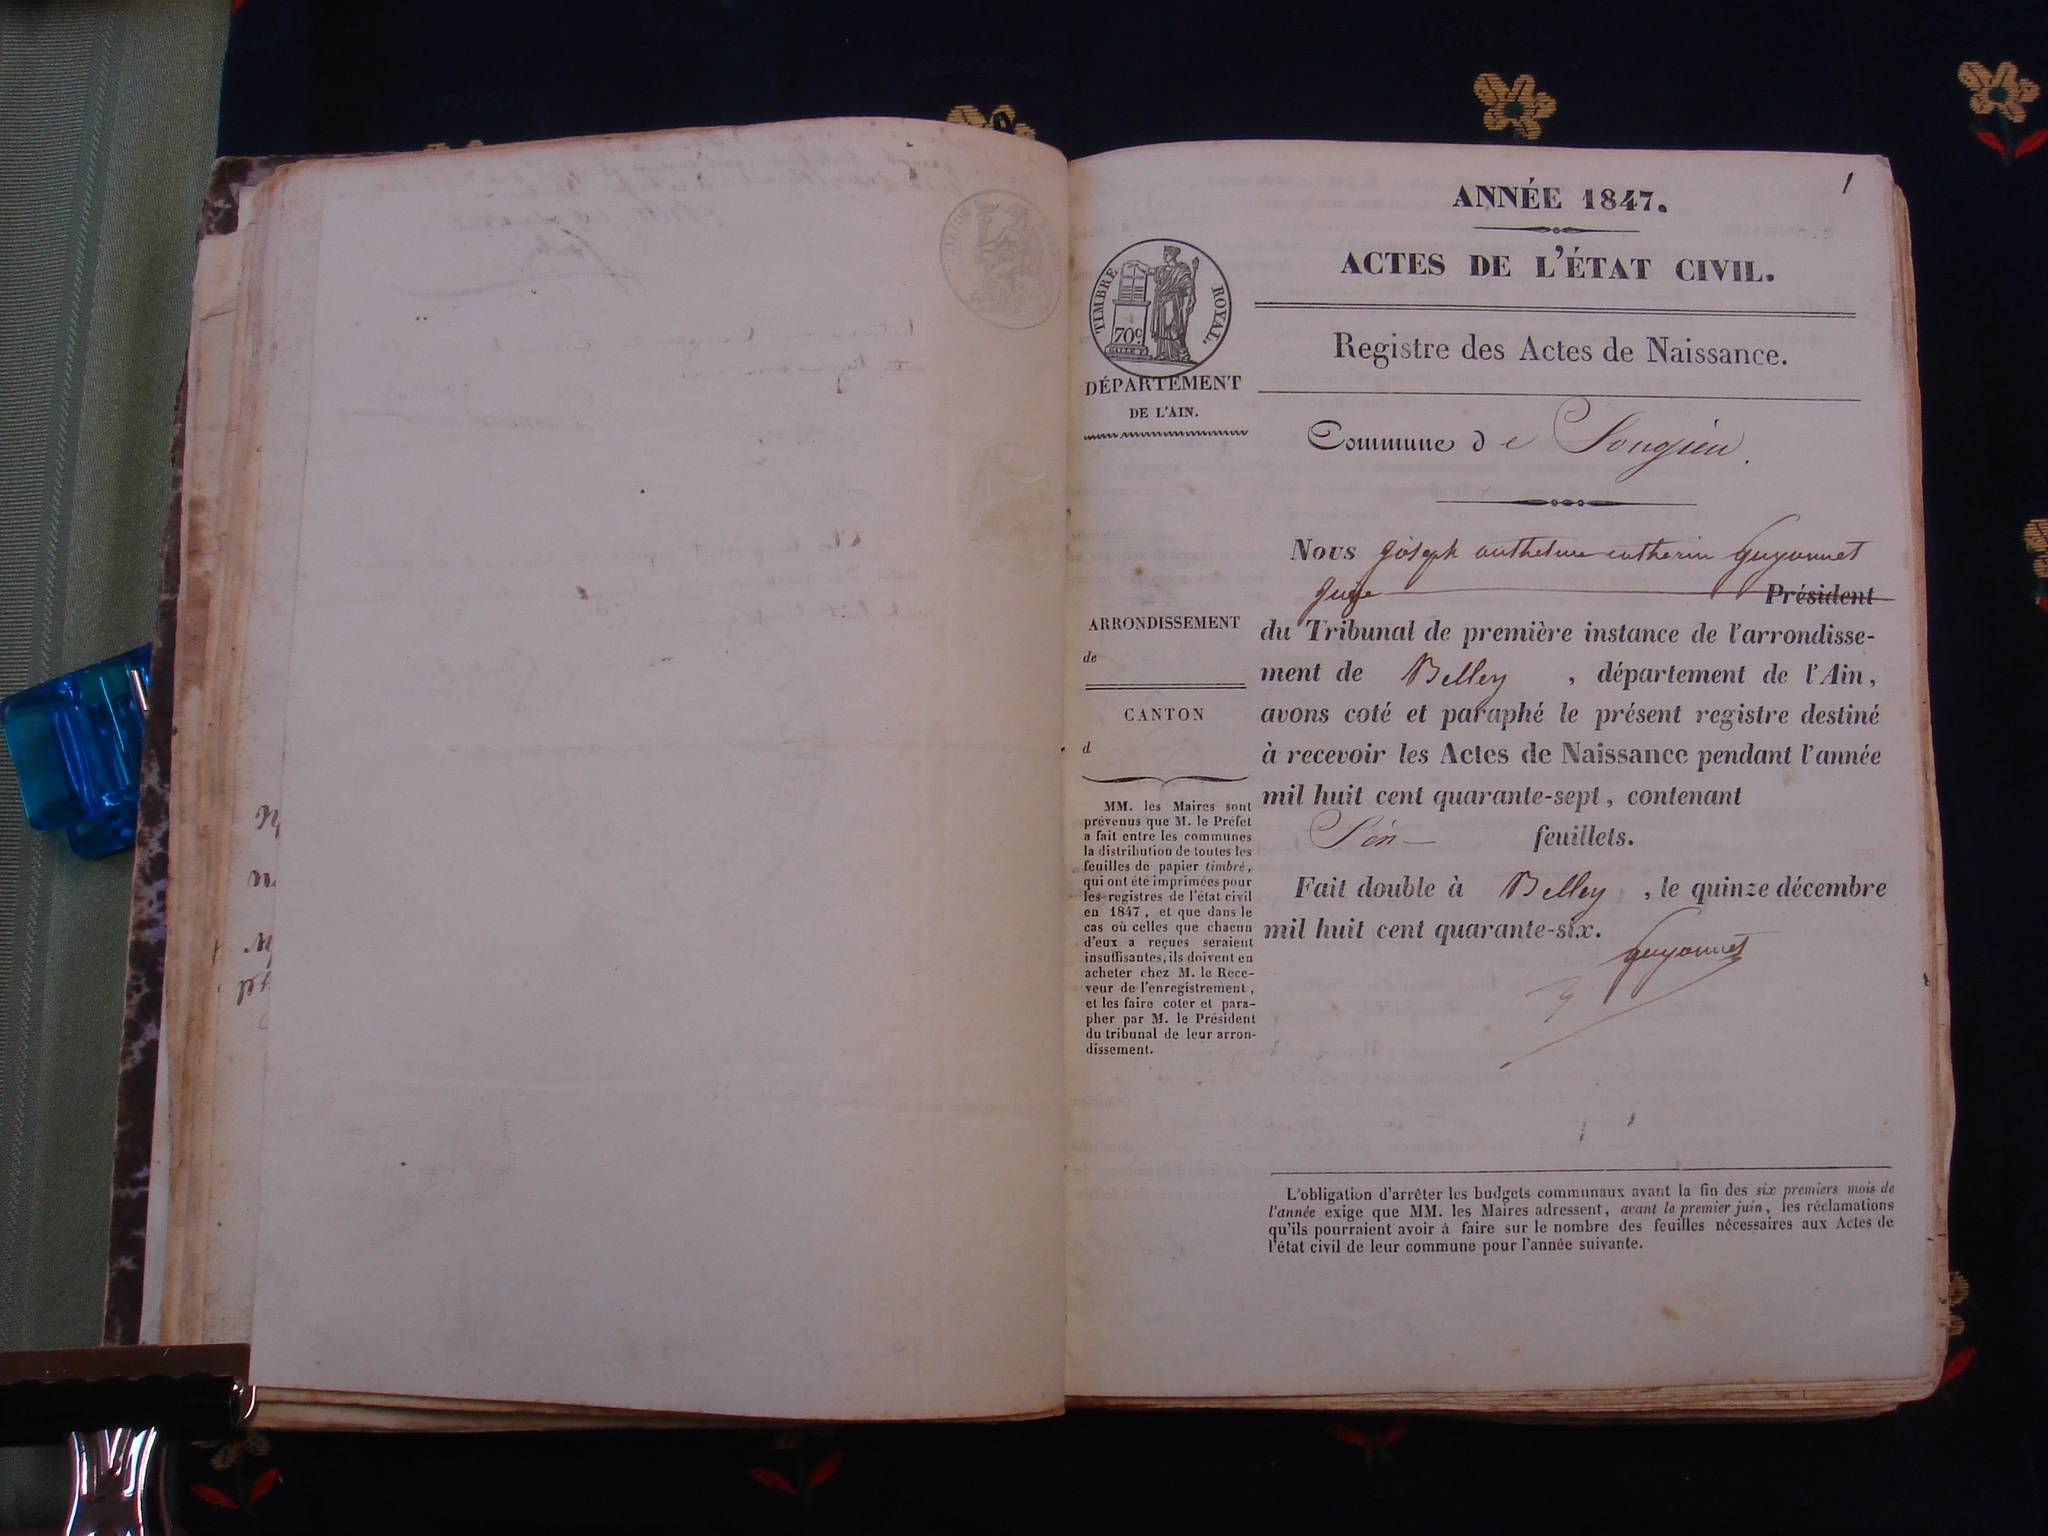 1
ANNÉE 1847.
ACTES DE L'ÉTAT CIVIL.
TIMBRE ROYAL.
70c
DÉPARTEMENT
DE L'AIN.
Registre des Actes de Naissance.
Commune de Songieu.
ARRONDISSEMENT
de
CANTON
d
MM. les Maires sont
prévenus que M. le Préfet
a fait entre les communes
la distribution de toutes les
feuilles de papier timbré,
qui ont été imprimées pour
les registres de l'état civil
en 1847, et que dans le
cas où celles que chacun
d'eux a reçues seraient
insuffisantes, ils doivent en
acheter chez M. le Rece-
veur de l'enregistrement,
et les faire coter et para-
pher par M. le Président
du tribunal de leur arron-
dissement.
Nous joseph anthelme Guyonnet
juge Président
du Tribunal de première instance de l'arrondisse-
ment de Belley, département de l'Ain,
avons coté et paraphé le présent registre destiné
à recevoir les Actes de Naissance pendant l'année
mil huit cent quarante-sept, contenant
feuillets.
Fait double à Belley, le quinze décembre
mil huit cent quarante-six.
Guyonnet
L'obligation d'arrêter les budgets communaux avant la fin des six premiers mois de
l'année exige que MM. les Maires adressent, avant le premier juin, les réclamations
qu'ils pourraient avoir à faire sur le nombre des feuilles nécessaires aux Actes de
l'état civil de leur commune pour l'année suivante.